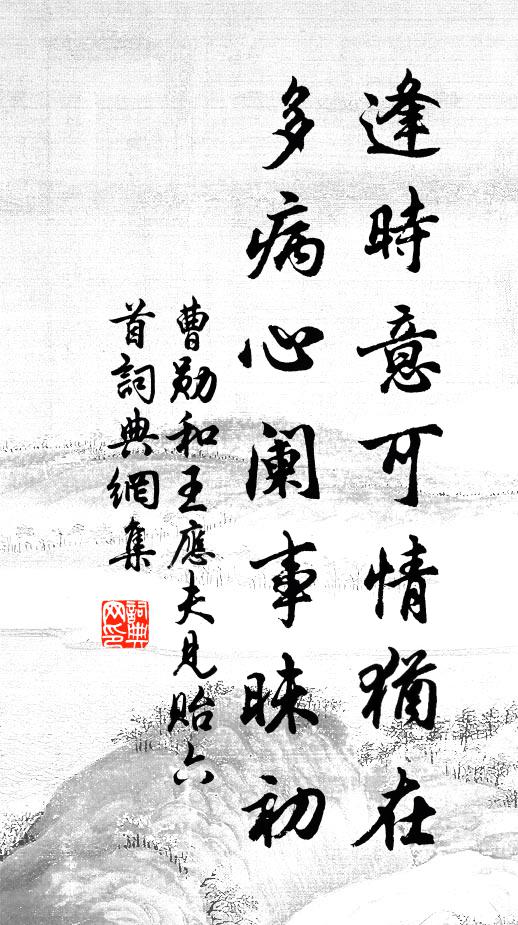 逢時意可情猶在
多病心阑事昧初
曹勋和王應夫見貽六
首詞典網集
詞典网印